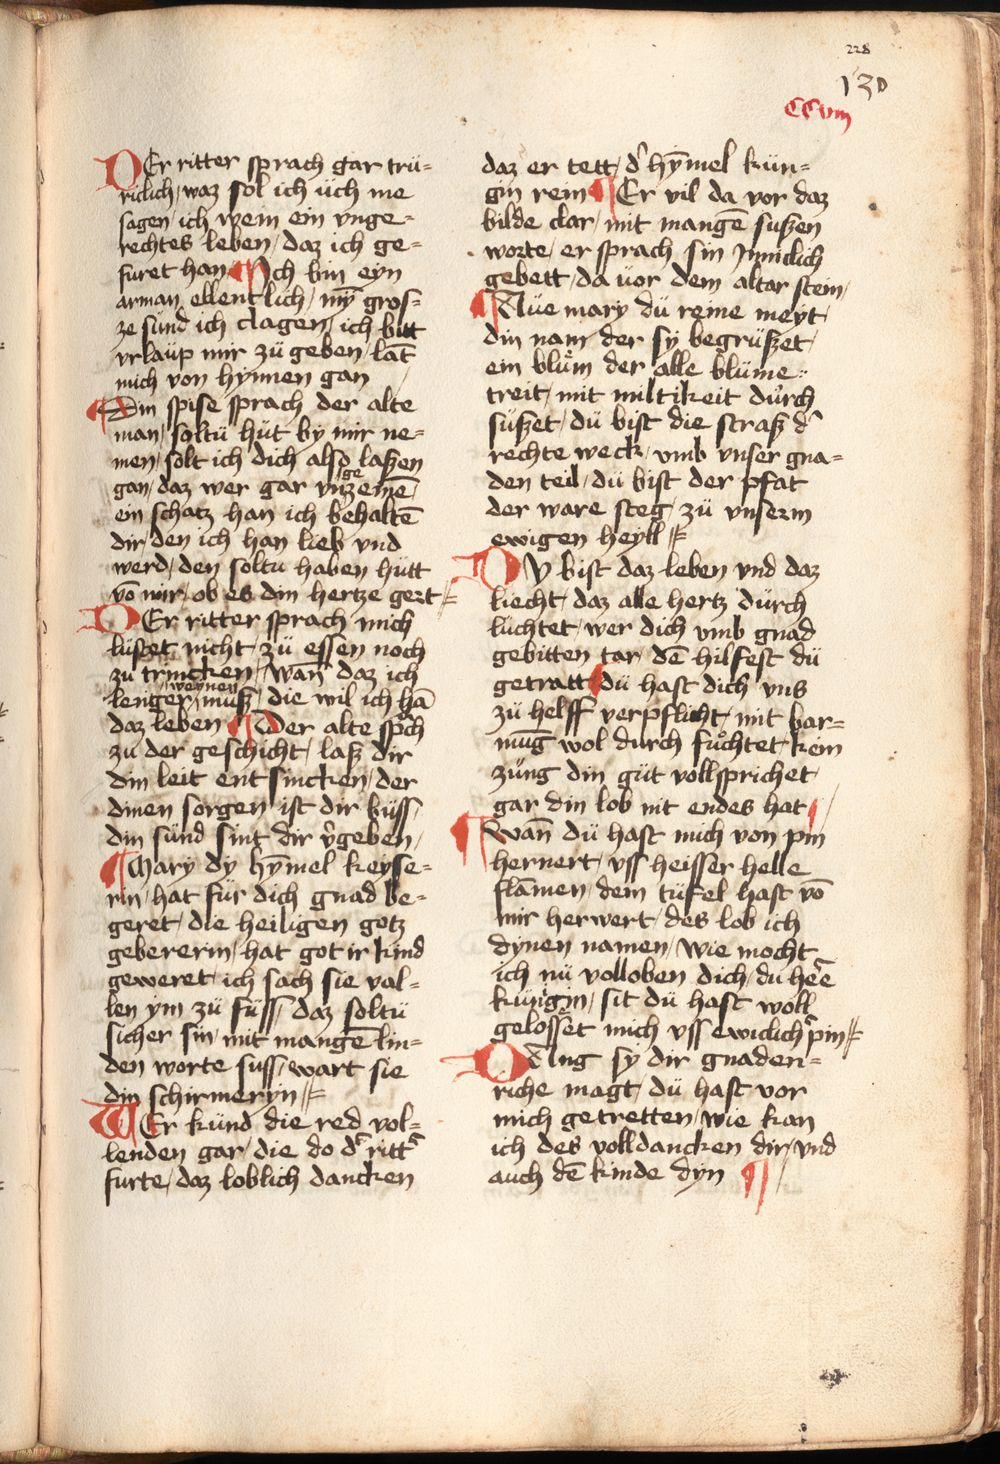 228
130
CCviij
DEr ritter sprach gar trü=
riclich / waz sol ich üch me
sagen / ich wein ein vnge=
rechtes leben / daz ich ge=
füret han ¶ Ich bin eyn
arman ellentlich / my̅ gros=
ze sünd ich clagen / ich bitt
vrlaüp mir zü geben / lat
mich von hynnen gan /
¶ Din spise sprach der alte
man / soltü hüt by mir ne=
men / solt ich dich also laßen
gan / daz wer gar vngezeme̅ /
ein schatz han ich behalte̅
dir / den ich han lieb vnd
werd / den soltu haben hütt
vo̅ mir / ob es din hertze gert //=
DEr ritter sprach mich
lüstet nicht / zü essen noch
zu trincken / wan̅ daz ich
lenger weynen müß / die wil ich ha̅
daz leben ¶ Der alte sp̊ch
zü der geschicht / laß dir
din leit entsincken / der
dinen sorgen ist dir büss /
din sünd sint dir v̉geben /
¶ Mary dy hy̅mel keyse=
rin / hat für dich gnad be=
geret / die heiligen gotz
gebererin / hat got ir kind
geweret / ich sach sie val=
len ym zü füss / daz soltü
sicher sin / mit mange̅ lin=
den worte suss / wart sie
din schirmeryn //=
WEr künd die red vol=
lenden gar / die do d̉ ritt̉
furte / daz loblich dancken
daz er tett / d̉ hy̅mel kün=
gin rein ¶ Er vil da vor daz
bilde clar / mit mange̅ sußen
worte / er sprach sin Inniclich
gebett / da vor dem altar stein /
¶ Aüe mary dü reine meyt /
din nam der sy begrüßet /
ein blům der alle blüme :
treit / mit miltikeit dürch
süßet / dü bist die straß d̉
rechte weck / vmb vnser gna=
den teil / dü bist der pfat
der ware steg / zü vnserm
ewigen heyll //=
DV bist daz leben vnd daz
liecht / daz alle hertz dürch
lüchtet / wer dich vmb gnad
gebitten tar / de̅ hilfest dü
getratt ¶ dü hast dich vns
zü helff verpflicht / mit bar=
mu̅g wol durch fůchtet / kein
züng din güt vollsprichet /
gar din lob nit endes hat /
¶ wan̅ dü hast mich von pin
hernert / vss heisser helle
fla̅men / dem tüfel hast vo̅
mir herwert / des lob ich
dynen namen / wie mocht
ich nü volloben dich / du he̅e
küngin / sit dü hast woll
gelosset mich vss ewiclich̉ pin //=
DAng sy dir gnaden=
riche magt / dü hast vor
mich getretten / wie kan
ich des volldancken dir / vnd
auch de̅ kinde dyn ¶